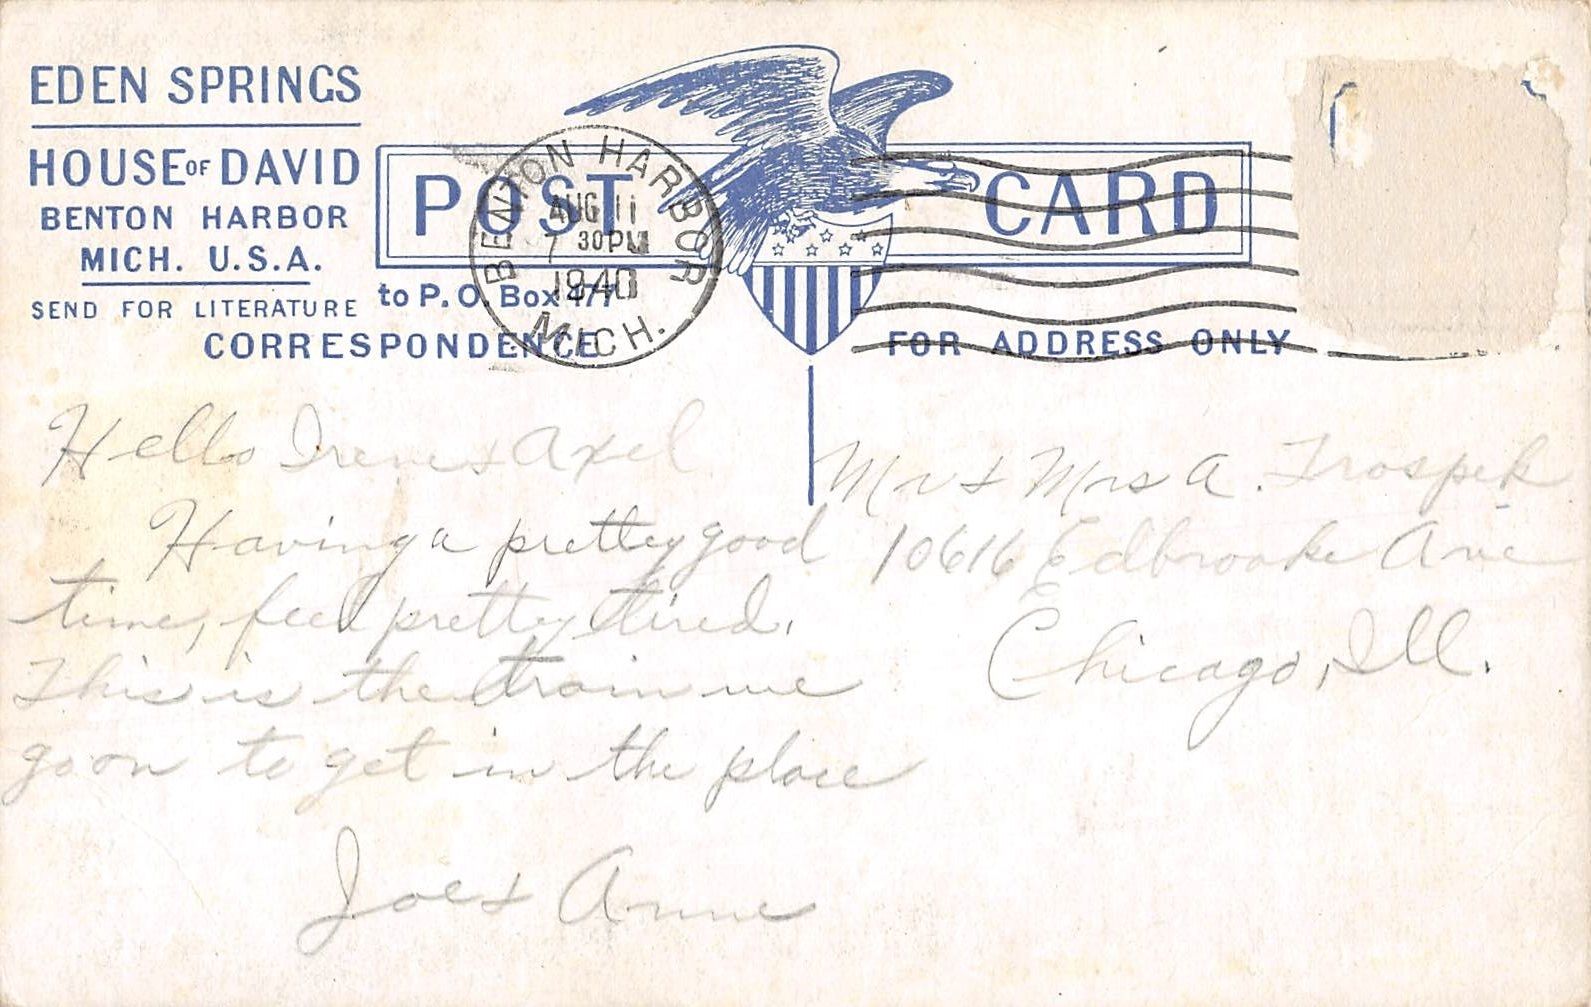 EDEN SPRINGS
HOUSE OF DAVID
BENTON HARBOR
MICH. U.S.A.
SEND FOR LITERATURE to P.O. Box 477
POST CARD
BENTON HARBOR
AUG 11
7 30 PM
1940
MICH.
CORRESPONDENCE
FOR ADDRESS ONLY
Hello Irene & Axel
Having a pretty good
time, feel pretty tired.
This is the train we
go on to get in the place
Joe & Anne
Mr & Mrs A.
10616 Edbrooke Ave
Chicago, Ill.